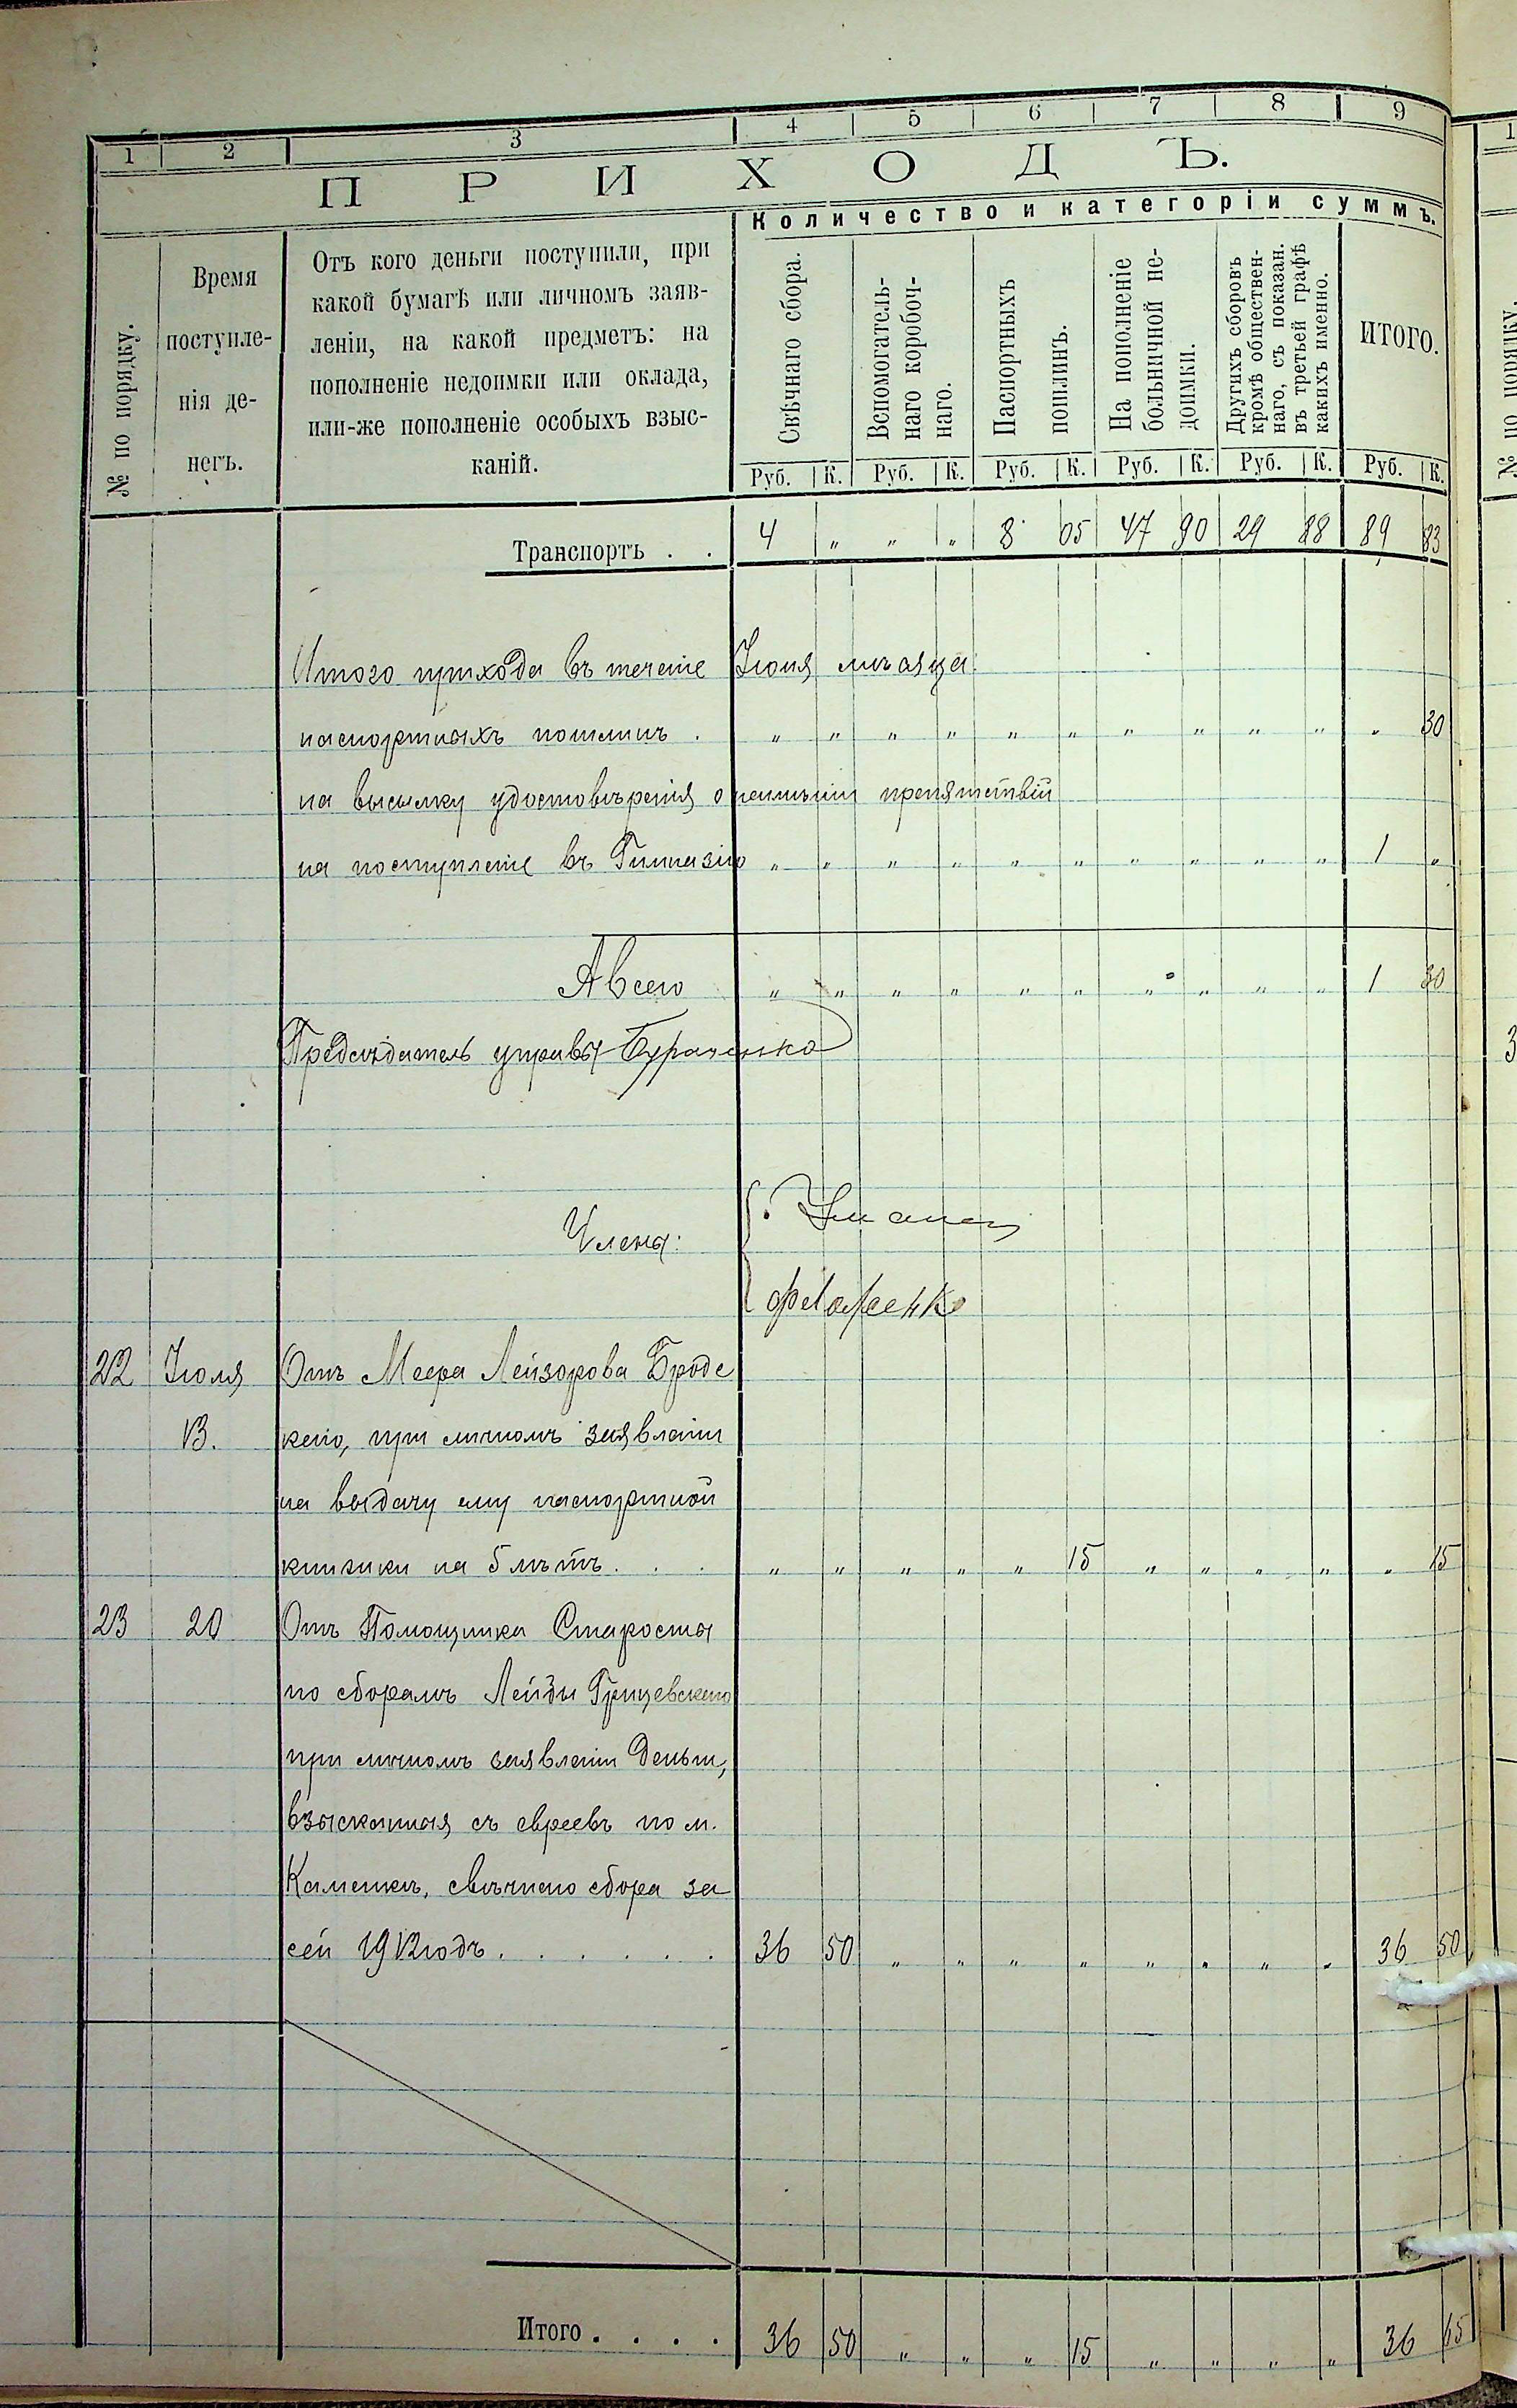 1 2 3 4 5 6 7 8 9
ПРИХОДЪ.
Количество и категоріи суммъ.
№ по порядку.
Время
поступле-
нія де-
негъ.
Отъ кого деньги поступили, при
какой бумагѣ или личномъ заяв-
леніи, на какой предметъ: на
пополненіе недоимки или оклада,
или-же пополненіе особыхъ взыс-
каній.
Свѣчнаго сбора.
Вспомогатель-
наго коробоч-
наго.
Паспортныхъ
пошлинъ.
На пополненіе
больничной не-
доимки.
Другихъ сборовъ
кромѣ обществен-
наго, съ показан.
въ третьей графѣ
какихъ именно.
ИТОГО.
Руб. К. Руб. К. Руб. К. Руб. К. Руб. К. Руб. К.
Транспортъ . . 4 „ „ „ 8 05 47 90 29 88 89 83
Итого прихода въ теченіе Іюня мѣсяца
паспортныхъ пошлинъ . „ „ „ „ „ „ „ „ „ „ „ 30
на высылку удостовѣренія о неимѣніи препятствій
на поступленіе въ Гимназію „ „ „ „ „ „ „ „ „ „ 1 „
А всего „ „ „ „ „ „ „ „ „ „ 1 30
Предсѣдатель управы
Члены:
22 Іюля Отъ Меера Лейзорова Бродс
13. каго, при личномъ заявленіи
на выдачу ему паспортной
книжки на 5 лѣтъ. . . „ „ „ „ „ 15 „ „ „ „ „ 15
23 20 Отъ Помощника Старосты
по сборамъ Лейзы Грицевскаго
при личномъ заявленіи деньги,
взысканныя съ евреевъ по м.
Каменкѣ, свѣчнаго сбора за
сей 1912 годъ . . . . . . 36 50 „ „ „ „ „ „ „ „ 36 50
Итого . . . . 36 50 „ „ „ 15 „ „ „ „ 36 15